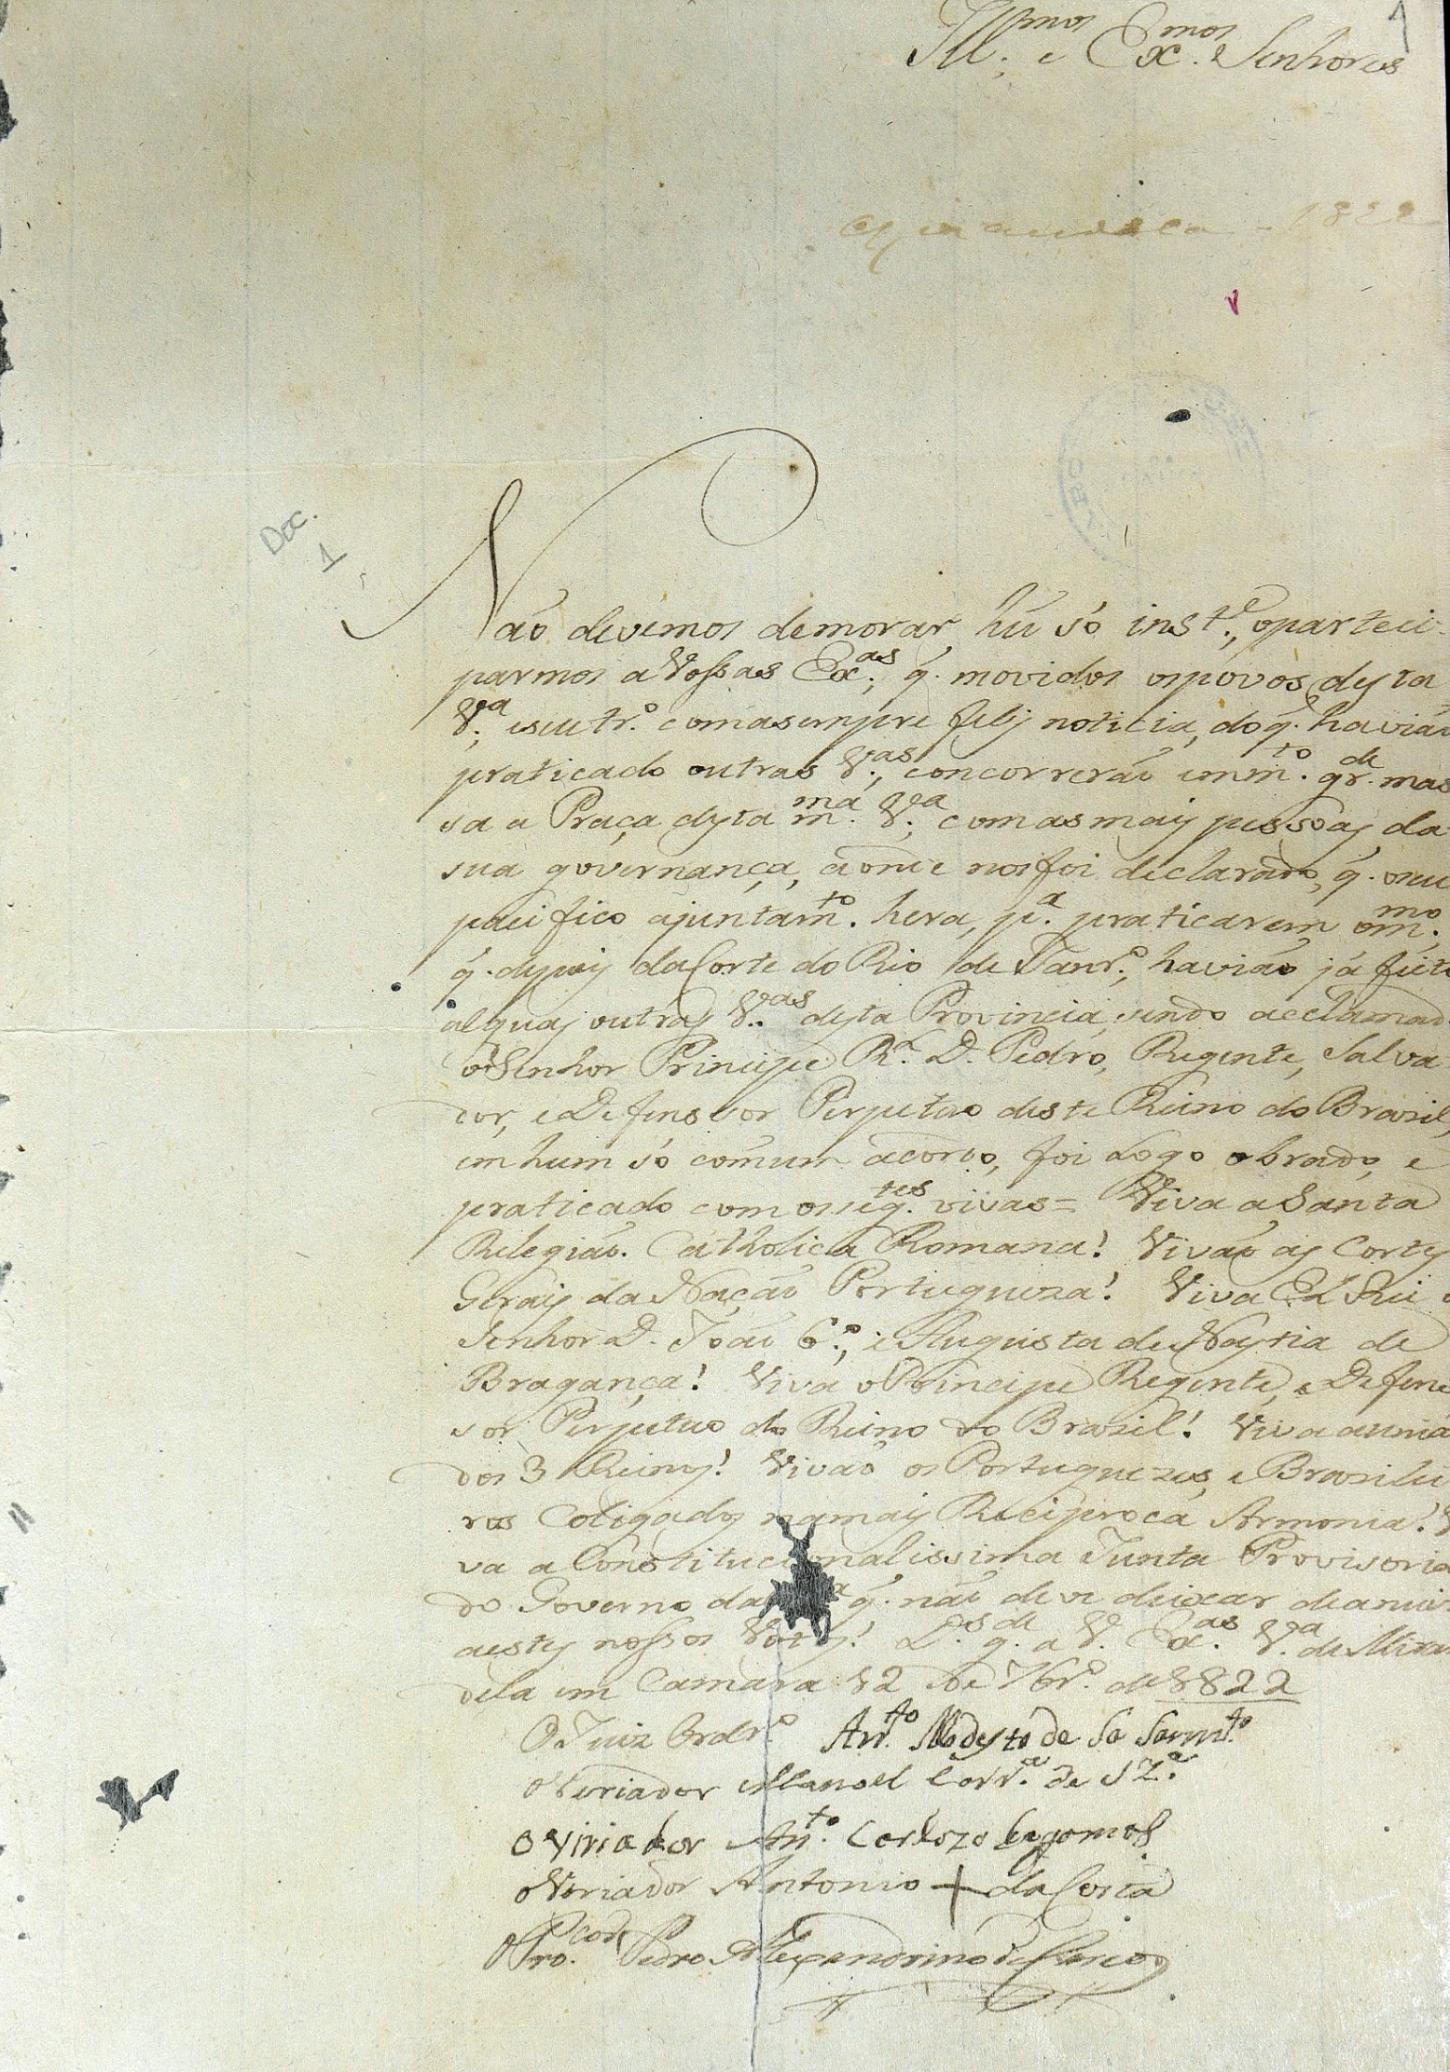 1
Ill.mos e Ex.mos Senhores
1822
Doc.
1
Não devemos demorar hũ só inst.e, oparteci-
parmos a Vossas Ex.as, q. movidos ospovos desta
V.a, eseu tr.o comasempre feliz noticia, doq. havião
praticado outras V.as, concorrerão emm.to gr.de mas
sa a Praça desta m.ma V.a, comasmais pessoas da
sua governança, aonde nosfoi declarado, q. oseu
pacifico ajuntam.to hera, p.a praticarem om.mo,
q. depois daCorte do Rio de Janr.o, havião já feito
alguas outras V.as desta Provincia, sendo acclamad
oSenhor Principe R.l D. Pedro, Regente, Salva
dor, eDefensor Perpetuo deste Reino do Brasil,
em hum só comum acordo, foi Logo obrado, e
praticado com osseg.tes vivas= Viva aSanta
Relegião. Catholica Romana! Vivão as Cortes
Gerais da Nação Portugueza! Viva El Rei o
Senhor D. João 6.o, e Augusta deNastia de
Bragança! Viva oPrincipe Regente, e Defen
sor Perpetuo do Reino do Brasil! Viva aunia
dos 3 Reinos! Vivão os Portuguezes, e Brasilei
ros Coligados namais Reciproca Armonia! V
va a Constitucionalissima Junta Provisoria
do Governo da q. não deve deixar deanui
aestes nossos Votos! D.s g.de a V. Ex.as V.a deMiran
dela em Camara 12 de 7br.o de1822
O Juiz Ordr.o Ant.o Modesto de Sa Sarm.to
oVeriador Manoel Corr.a de SZ.a
oViriador An.to Cardozo
oVeriador Antonio + daCosta
O Pro.cor Pedro Alexandrino de